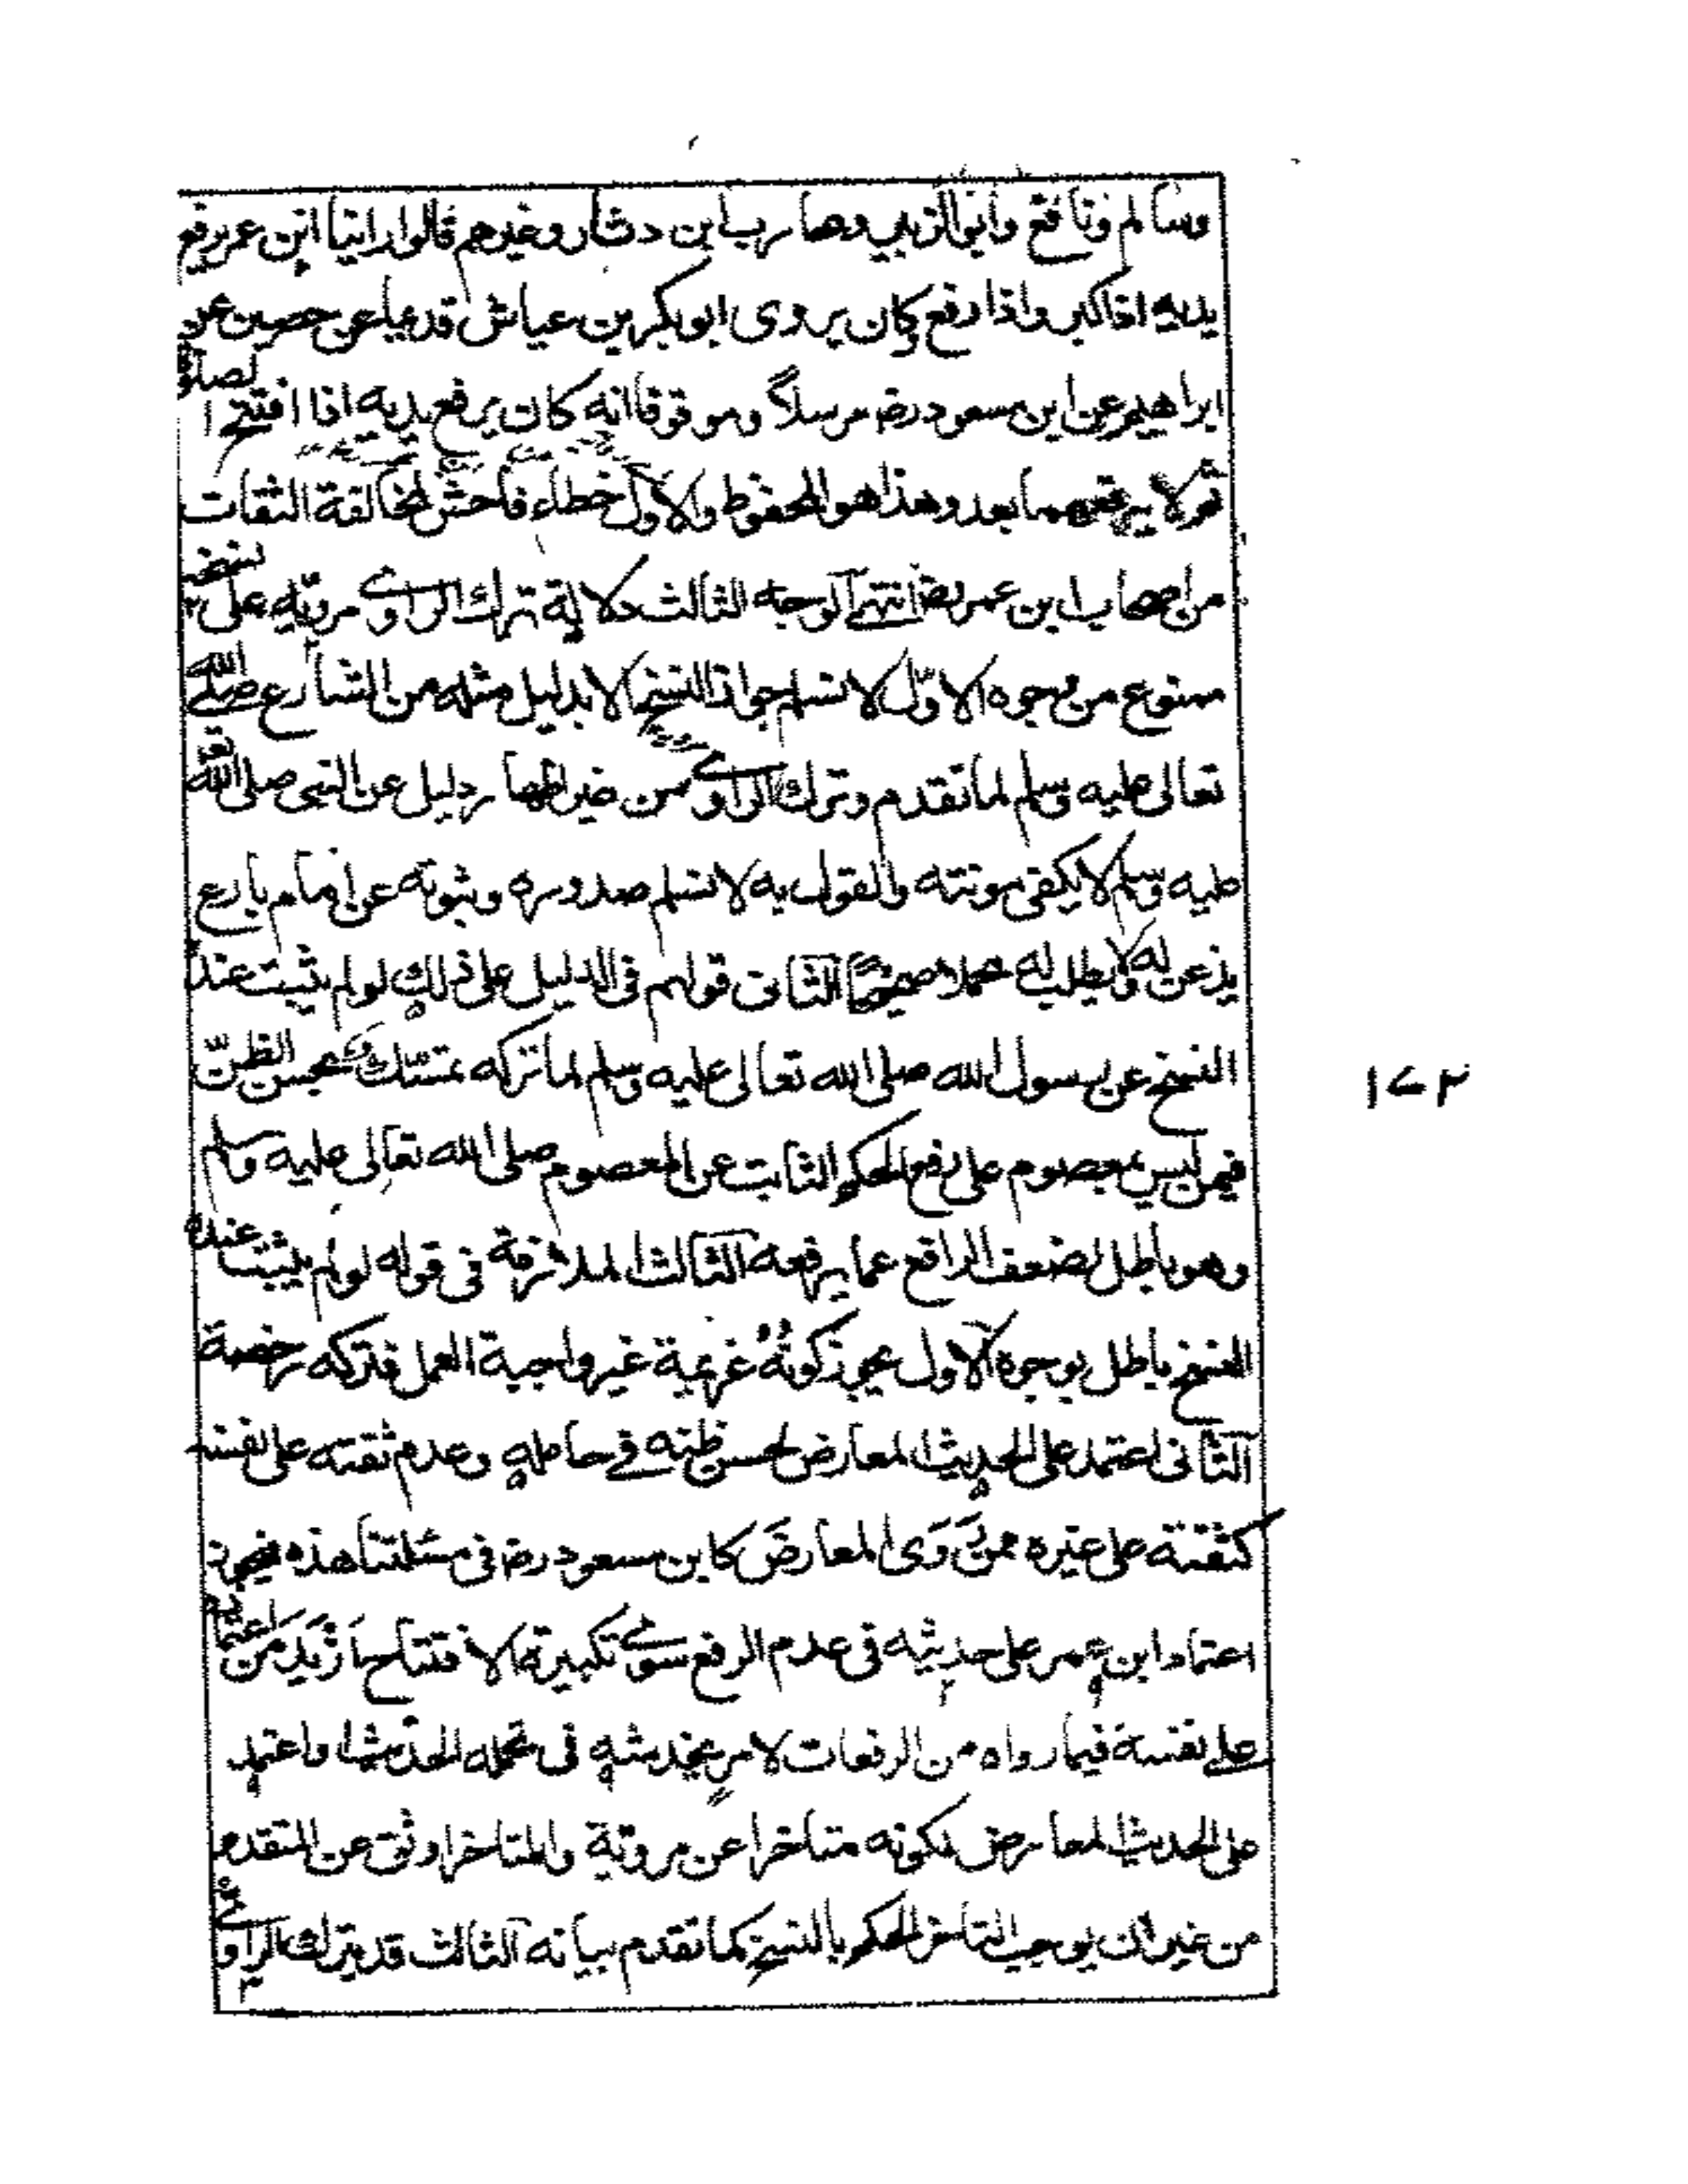 وسالم ونافع وابوالزبير ومحارب ابن دثار وغيرهم قالوا راينا ابن عمر يرفع
يديه اذا كبر واذا رفع وكان يروى ابوبكر بن عياش قديما عن حصين عن
ابراهيم عن ابن مسعود رضـ مرسلاً وموقوفا انه كان يرفع يديه اذا افتتح الصلوة
ثم لا يرفعهما بعد وهذا هو المحفوظ والاول خطاء فاحش لمخالفة الثقات
من اصحاب ابن عمر رضـ انتهى الوجه الثالث دلالة ترك الراوے مرويّه على نسخه
ممنوع من وجوه الاوّل لا نسلم جواز النسخ الا بدليل مثله من الشارع صلے الله
تعالى عليه وسلم لما تقدم وترك الراوے من غير اظهار دليل عن النبى صلى الله
عليه وسلم لا يكفى مونته والقول به لا نسلم صدوره وثبوته عن امام بارع
يذعن له ولا يطلب له محملا صحيحًا الثانى قولهم فى الدليل على ذلك لو لم يثبت عنده
النسخ عن رسول الله صلى الله تعالى عليه وسلم لما تركه تمسّك بحسن الظنّ
فيمن ليس بمعصوم على رفع الحكم الثابت عن المعصوم صلى الله تعالى عليه وسلم
وهو باطل لضعف الرافع عما يرفعه الثالث الملازمة فى قوله لو لم يثبت عنده
النسخ باطل بوجوه الاول يجوز كونُهُ عزيمة غير واجبة العمل فتركه رخصة
الثانى اعتمد على الحديث المعارض لحسن ظنه فے حامله وعدم ثقته على نفسه
كثقته على غيره ممن رَوَى المعارضَ كابن مسعود رضـ فى مسئلتنا هذه فيجوز
اعتماد ابن عمر على حديثه فى عدم الرفع سوے تكبيرة الافتتاح ازيد من اعتماده
علے نفسه فيما رواه من الرفعات لامر يخدشه فى تحمله الحديث او اعتمد
على الحديث المعارض لكونه متاخرا عن مرويه والمتاخر اوثق عن المتقدم
من غير ان يوجب التاخر الحكم بالنسخ كما تقدم بيانه الثالث قد يترك الراوے
۱۷۳